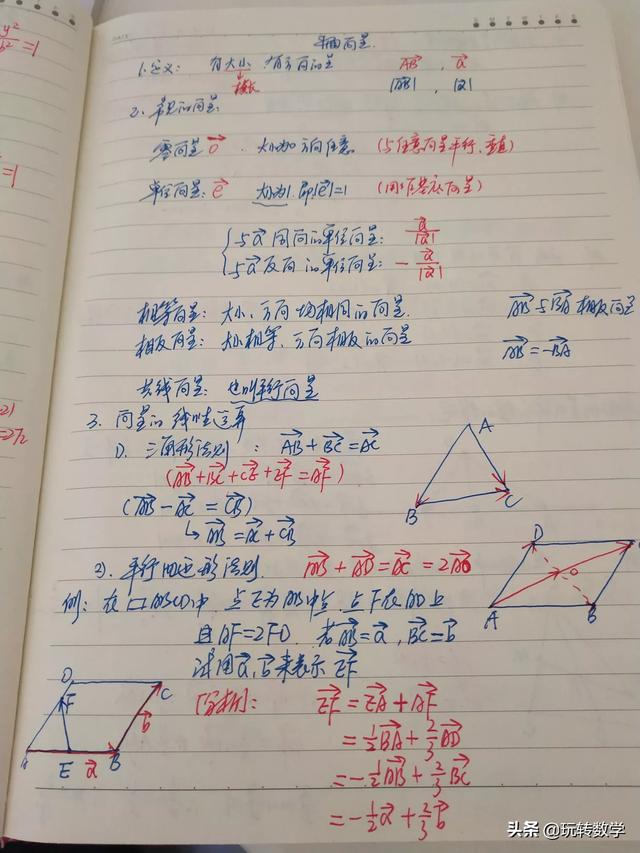 y²
b² =1
平面向量
1. 定义: 有大小, 有方向的量 AB→, a→
模长 |AB→|, |a→|
2. 常见的向量:
零向量 0→ . 大小为0 方向任意 (与任意向量平行、垂直)
=1
单位向量: e→ 大小为1 即|e→|=1 (用作基底向量)
{与a→同向的单位向量: a→/|a→|
与a→反向的单位向量: - a→/|a→|
相等向量: 大小、方向均相同的向量. AB→与BA→相反向量
相反向量: 大小相等、方向相反的向量 AB→=-BA→
共线向量: 也叫平行向量
3. 向量的线性运算
1). 三角形法则: AB→+BC→=AC→
(AB→+BC→+CE→+EF→=AF→)
(AB→-AC→=CB→)
↳ AB→=AC→+CB→
A
B
C
2). 平行四边形法则. AB→+AD→=AC→=2AO→
D
O
A
B
例: 在□ABCD中 点E为AB中点, 点F在AD上
且AF=2FD. 若AB→=a→, BC→=b→
试用a→, b→来表示EF→
D
F
C
b→
A
E
a→
B
[分析]: EF→=EA→+AF→
=1/2BA→+2/3AD→
=-1/2AB→+2/3BC→
=-1/2a→+2/3b→
头条 @玩转数学